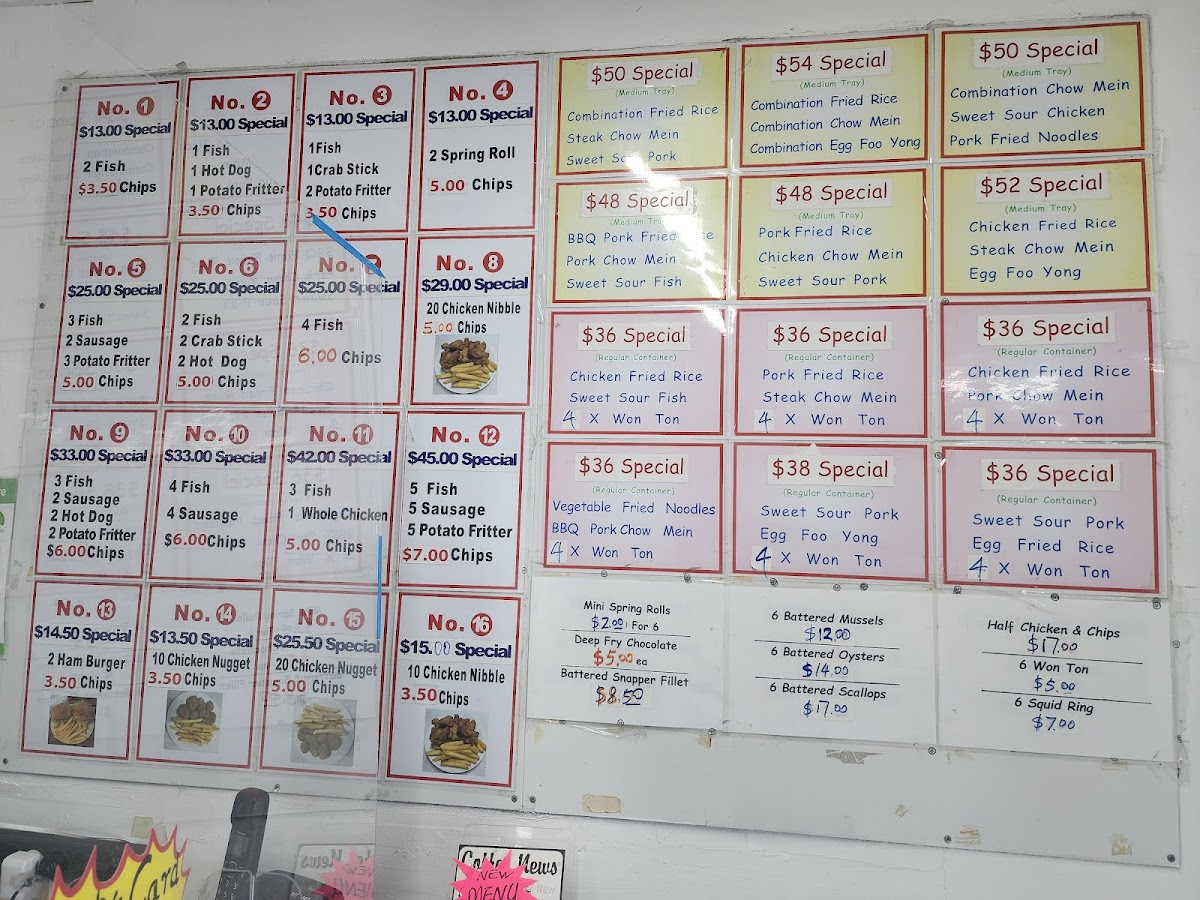 No. 1
$13.00 Special
2 Fish
$3.50 Chips
No. 2
$13.00 Special
1 Fish
1 Hot Dog
1 Potato Fritter
3.50 Chips
No. 3
$13.00 Special
1Fish
1Crab Stick
2 Potato Fritter
3.50 Chips
No. 4
$13.00 Special
2 Spring Roll
5.00 Chips
No. 5
$25.00 Special
3 Fish
2 Sausage
3 Potato Fritter
5.00 Chips
No. 6
$25.00 Special
2 Fish
2 Crab Stick
2 Hot Dog
5.00 Chips
No. 7
$25.00 Special
4 Fish
6.00 Chips
No. 8
$29.00 Special
20 Chicken Nibble
5.00 Chips
No. 9
$33.00 Special
3 Fish
2 Sausage
2 Hot Dog
2 Potato Fritter
$6.00Chips
No. 10
$33.00 Special
4 Fish
4 Sausage
$6.00Chips
No. 11
$42.00 Special
3 Fish
1 Whole Chicken
5.00 Chips
No. 12
$45.00 Special
5 Fish
5 Sausage
5 Potato Fritter
$7.00 Chips
No. 13
$14.50 Special
2 Ham Burger
3.50 Chips
No. 14
$13.50 Special
10 Chicken Nugget
3.50 Chips
No. 15
$25.50 Special
20 Chicken Nugget
5.00 Chips
No. 16
$15.00 Special
10 Chicken Nibble
3.50 Chips
$50 Special
(Medium Tray)
Combination Fried Rice
Steak Chow Mein
Sweet Sour Pork
$54 Special
(Medium Tray)
Combination Fried Rice
Combination Chow Mein
Combination Egg Foo Yong
$50 Special
(Medium Tray)
Combination Chow Mein
Sweet Sour Chicken
Pork Fried Noodles
$48 Special
(Medium Tray)
BBQ Pork Fried Rice
Pork Chow Mein
Sweet Sour Fish
$48 Special
(Medium Tray)
Pork Fried Rice
Chicken Chow Mein
Sweet Sour Pork
$52 Special
(Medium Tray)
Chicken Fried Rice
Steak Chow Mein
Egg Foo Yong
$36 Special
(Regular Container)
Chicken Fried Rice
Sweet Sour Fish
4 X Won Ton
$36 Special
(Regular Container)
Pork Fried Rice
Steak Chow Mein
4 X Won Ton
$36 Special
(Regular Container)
Chicken Fried Rice
Pork Chow Mein
4 X Won Ton
$36 Special
(Regular Container)
Vegetable Fried Noodles
BBQ Pork Chow Mein
4 X Won Ton
$38 Special
(Regular Container)
Sweet Sour Pork
Egg Foo Yong
4 X Won Ton
$36 Special
(Regular Container)
Sweet Sour Pork
Egg Fried Rice
4 X Won Ton
Mini Spring Rolls
$2.00 For 6
Deep Fry Chocolate
$5.00 ea
Battered Snapper Fillet
$8.50
6 Battered Mussels
$12.00
6 Battered Oysters
$14.00
6 Battered Scallops
$17.00
Half Chicken & Chips
$17.00
6 Won Ton
$5.00
6 Squid Ring
$7.00
Card
News
NEW
MENU